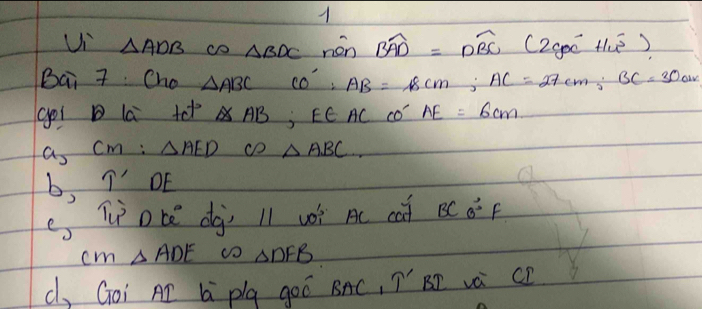 1
Vì △ADB ∽ △BDC nên BAD^ = DBC^ (2 góc t/ư)
Bài 7 : Cho △ABC có : AB = 18cm ; AC = 27cm ; BC = 30cm
gọi D là tđ AB ; E∈ AC có AE = 6cm
a, Cm : △AED ∽ △ABC.
b, T' DE
c, Từ D kẻ đg, // với AC cắt BC ở F
cm △ADE ∽ △DFB
d, Gọi AI là p/g góc BAC, T' BI và CI